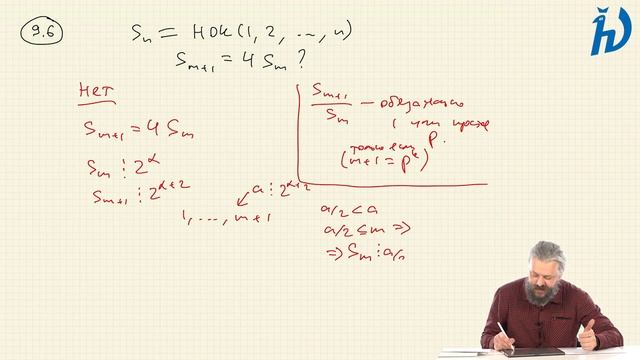 9.6
Sₙ = НОК(1, 2, ..., n)
Sₘ₊₁ = 4 Sₘ ?
Нет
Sₘ₊₁ = 4 Sₘ
Sₘ ⋮ 2^α
Sₘ₊₁ ⋮ 2^(α+2)
a ⋮ 2^(α+2)
1, ..., m+1
Sₘ₊₁/Sₘ —
1 или
p.
(только если
m+1 = p^k)
a/2 < a
a/2 ≤ m ⇒
⇒ Sₘ ⋮ a/2